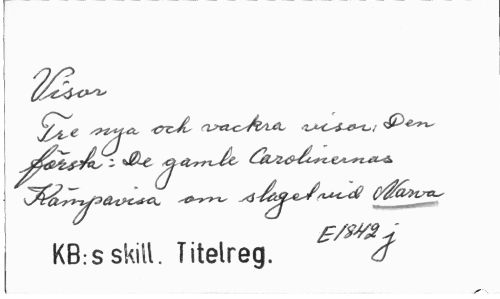 Visor
Tre nya och vackra visor; Den
första: De gamle Carolinernas
Kämpavisa om slaget vid Narva
E1842j
KB:s skill. Titelreg.